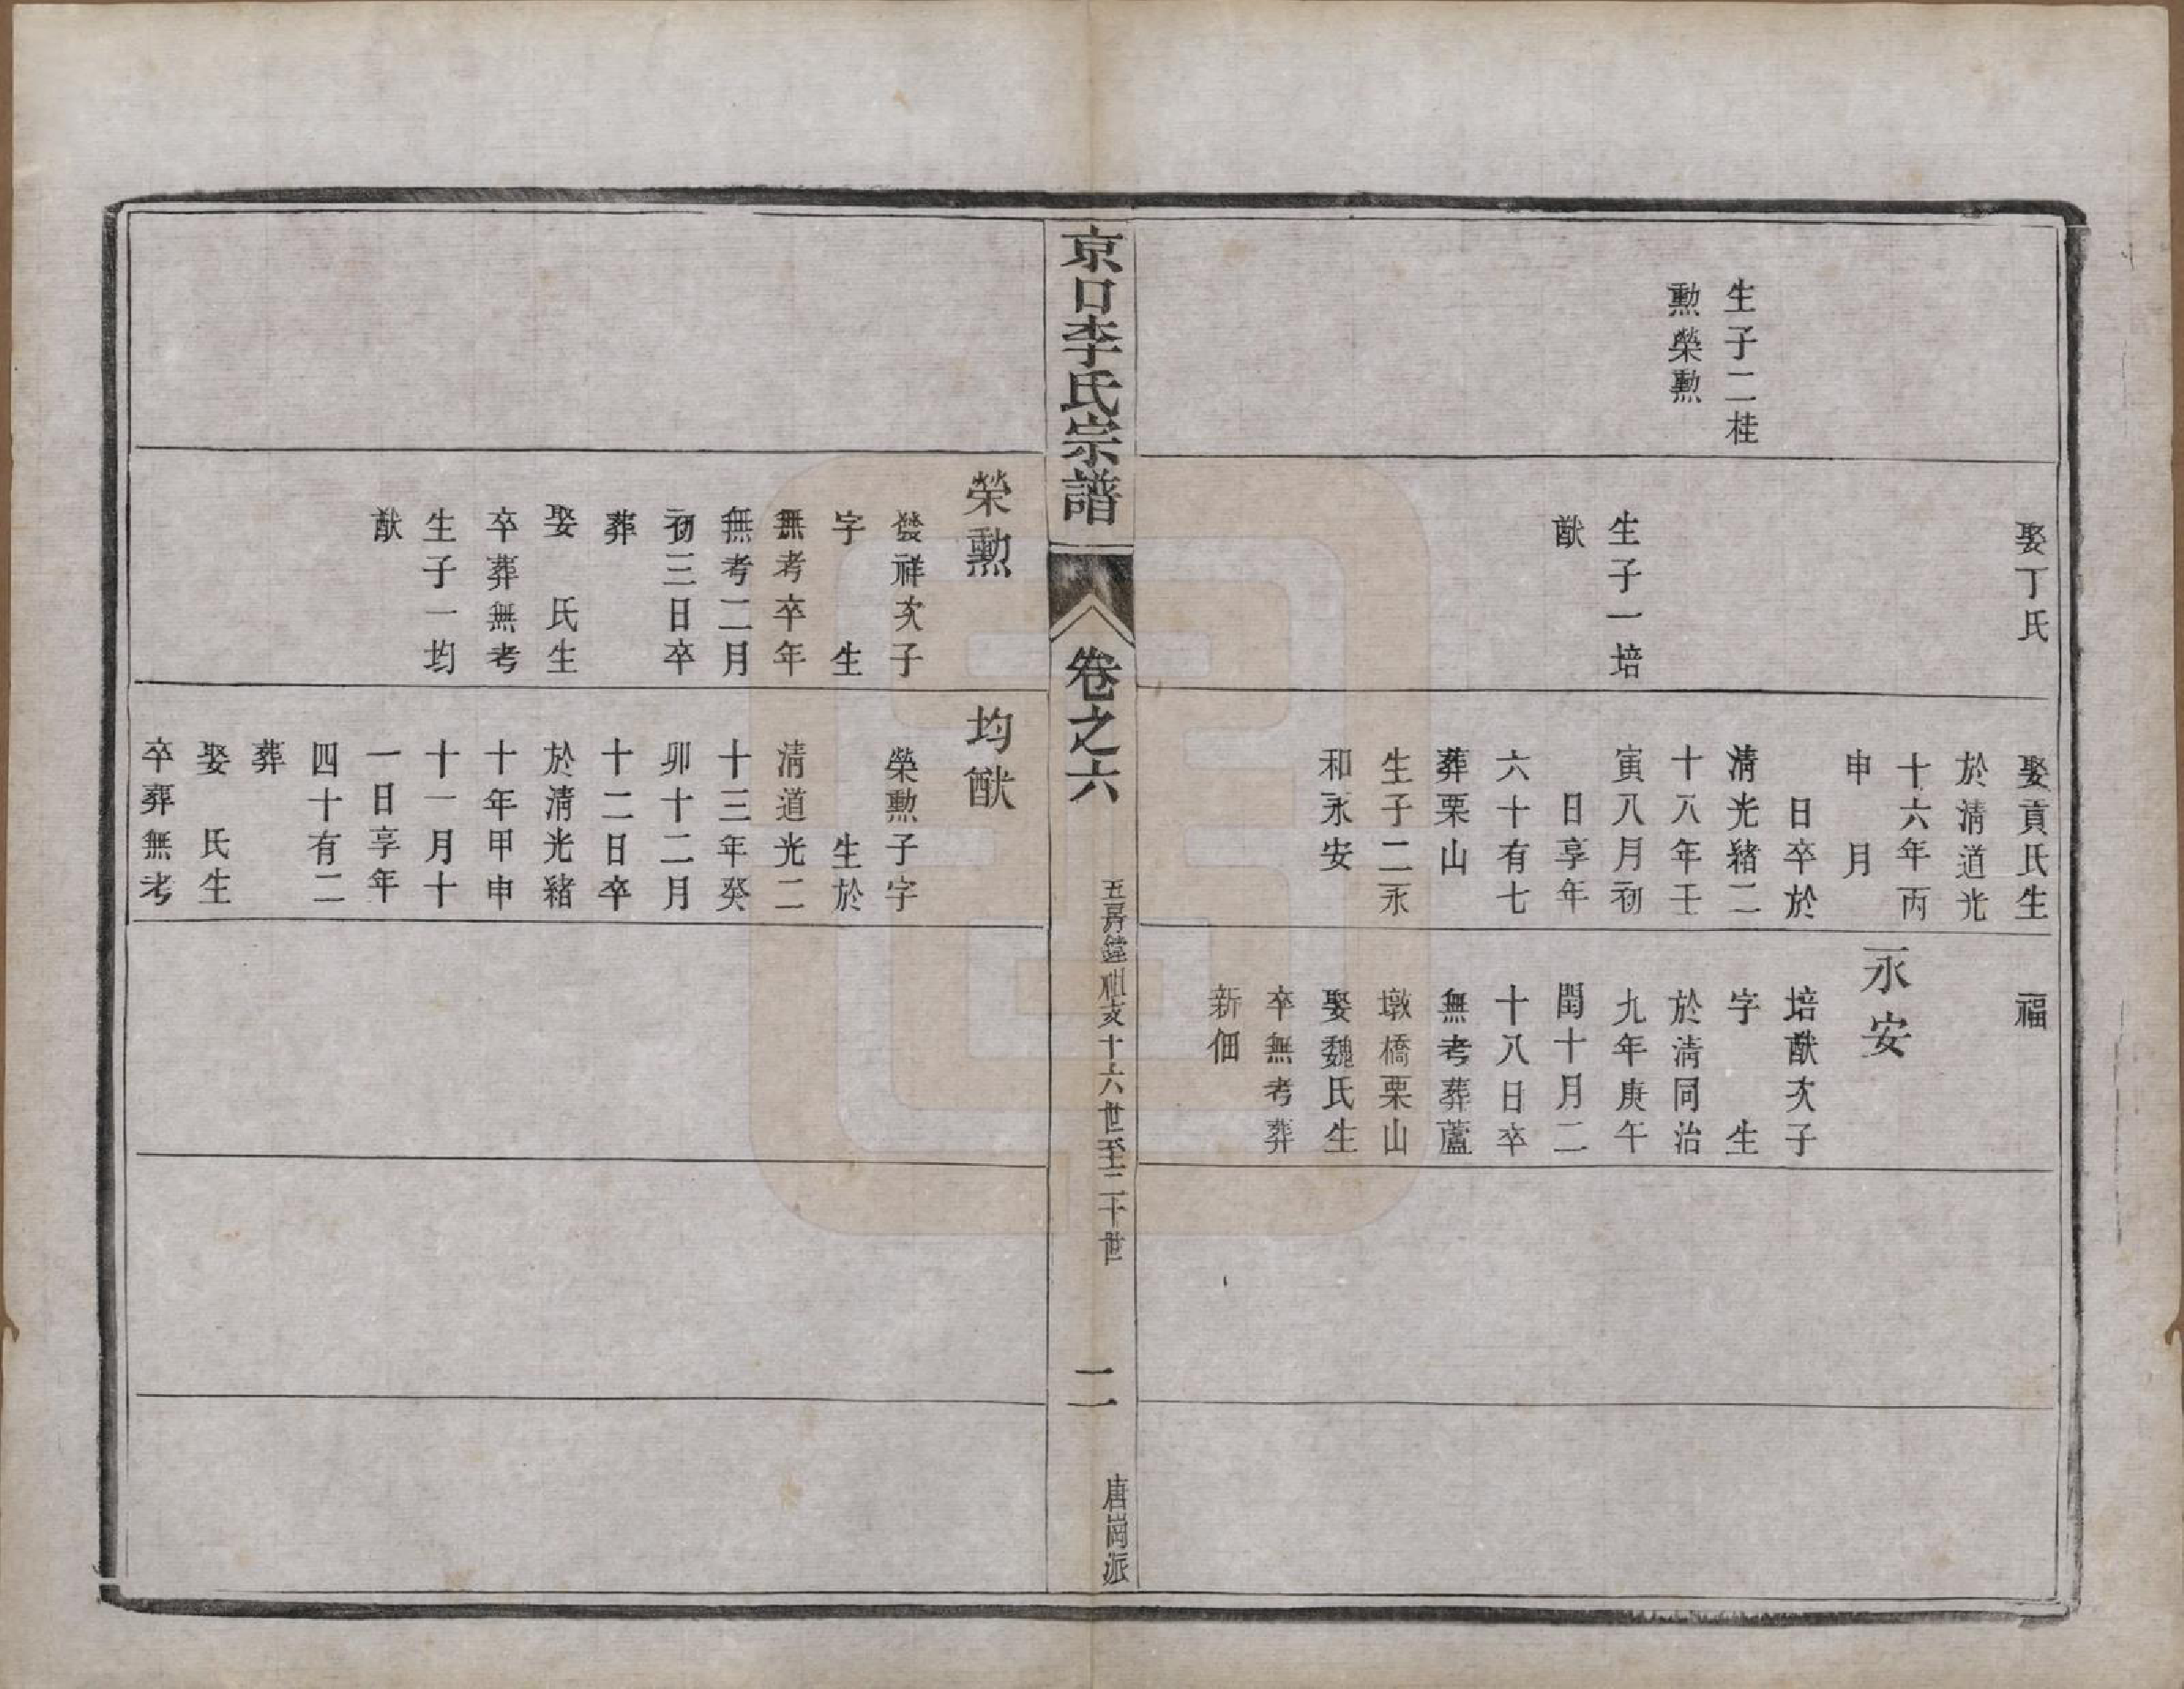 生子二桂
勲榮勲
娶丁氏
生子一培
猷
娶貢氏生
於淸道光
十六年丙
申　月
　日卒於
淸光緒二
十八年壬
寅八月初
　日享年
六十有七
葬栗山
生子二永
和永安
福
永安
培猷次子
字　　生
於淸同治
九年庚午
閏十月二
十八日卒
無考葬蘆
墩橋栗山
娶魏氏生
卒無考葬
新佃
京口李氏宗譜
卷之六
五房鐘祖支十六世至二十世
二
唐崗派
榮勲
發祥次子
字　　生
無考卒年
無考二月
初三日卒
葬
娶　氏生
卒葬無考
生子一均
猷
均猷
榮勲子字
　　生於
淸道光二
十三年癸
卯十二月
十二日卒
於淸光緒
十年甲申
十一月十
一日享年
四十有二
葬
娶　氏生
卒葬無考